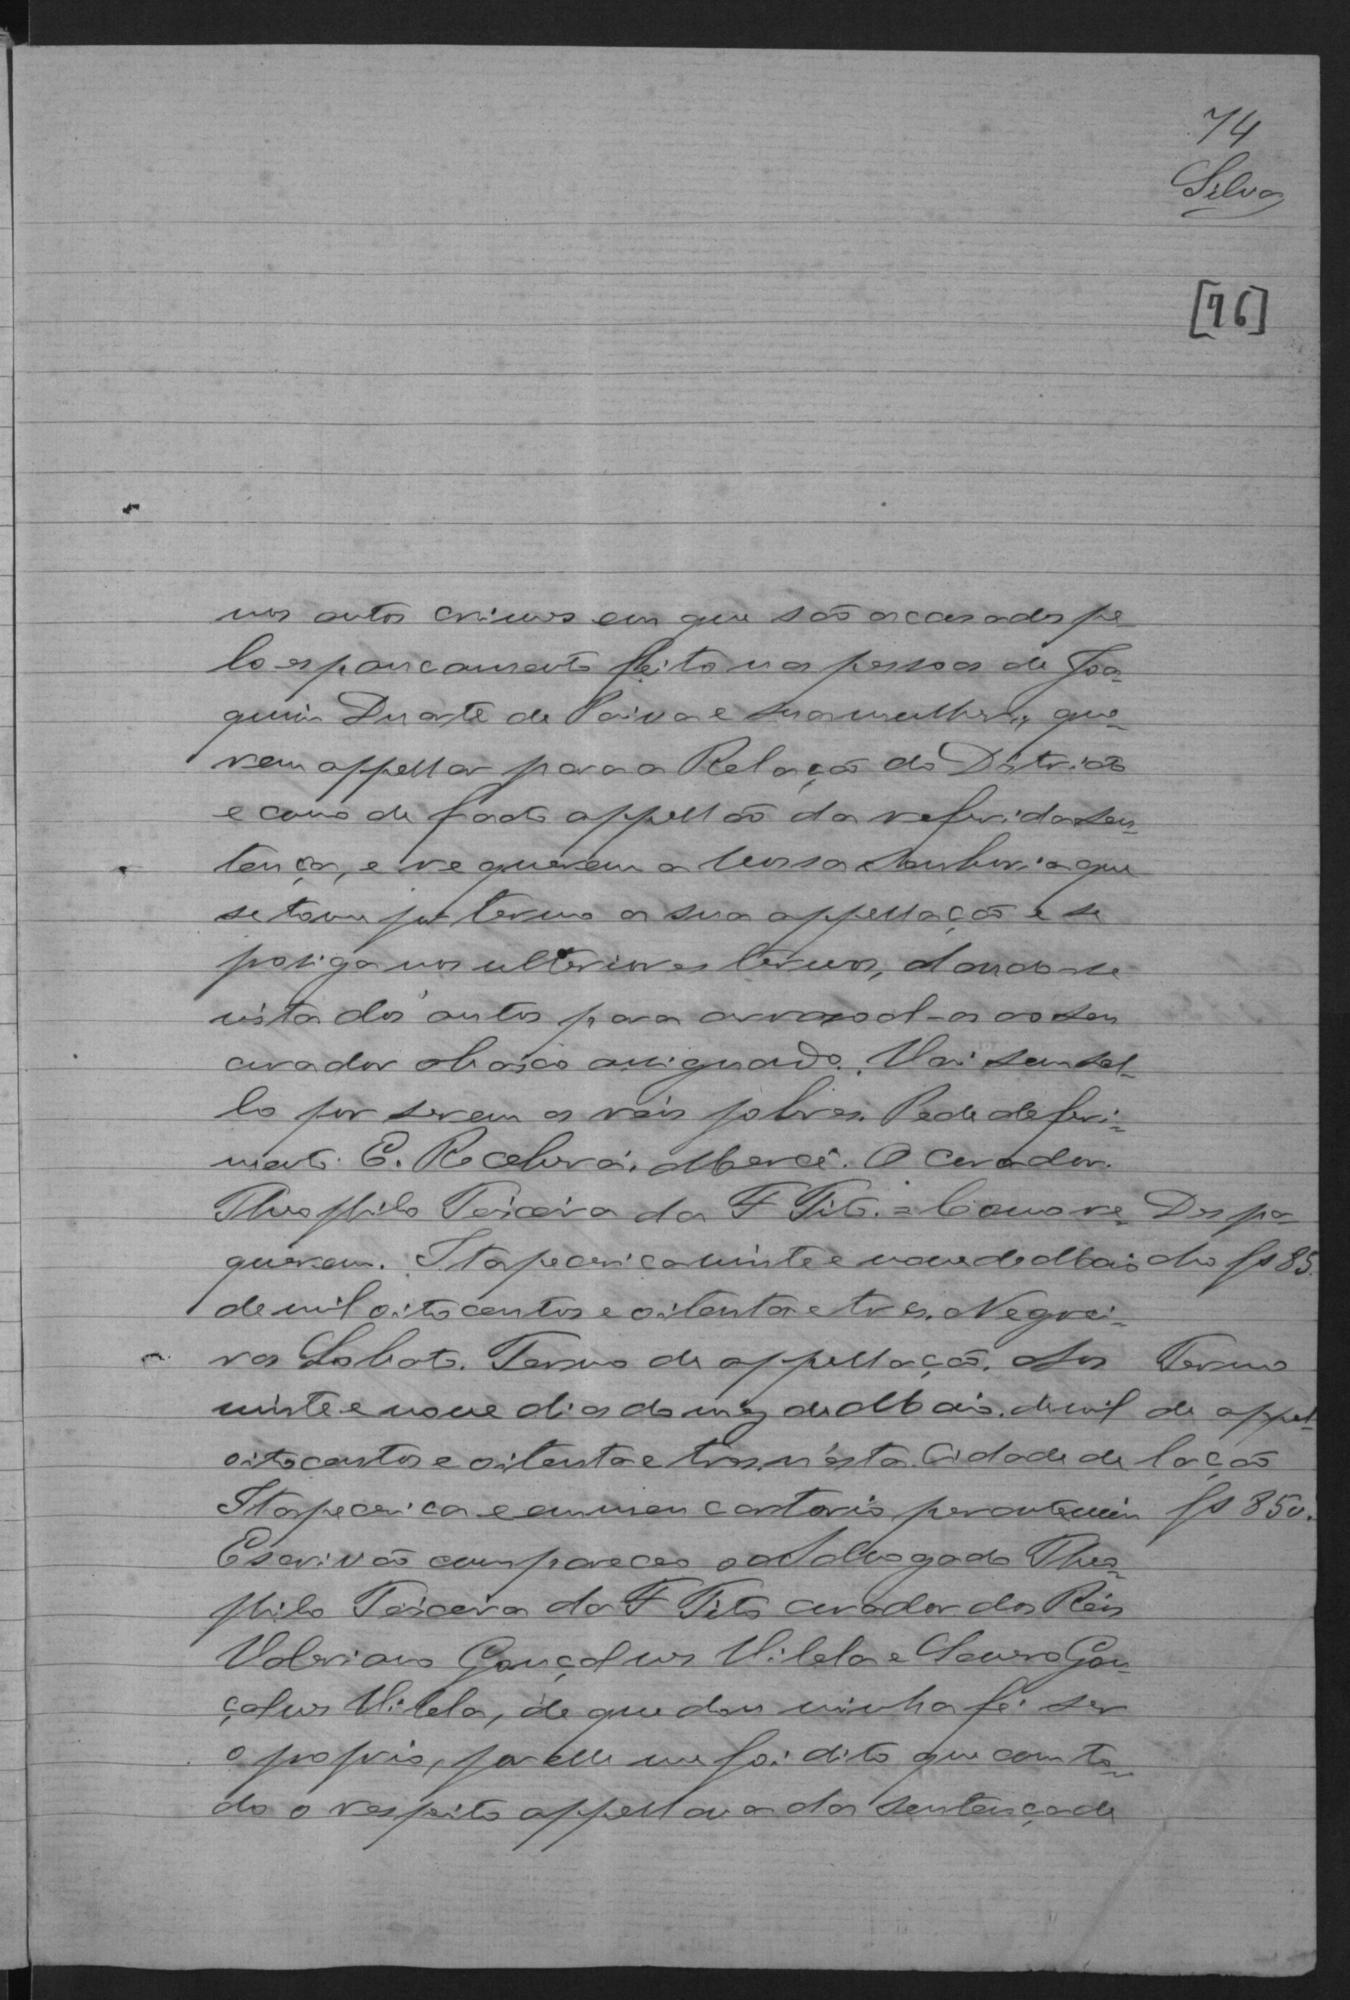 74
Silva
[76]
nos autos crimes em que são accusados pe
lo espancamento feito nas pessoas de Joa-
quim Duarte de Paiva e sua mulher, que-
rem appellar para a Relação do Districto
e como de facto appellão da referida sen-
tença, e requerem a Vossa Senhoria que
se tome por termo a sua appellação e se
prosiga nos ulteriores termos, dando-se
vista dos autos para arrasoal-a ao seu
curador abaixo assignado. Vai sem sel-
lo por serem os réis pobres. Pede deferi-
mento. E. Receberá. Mercê. O Curador.
Theophilo Teixeira da F Tito. = Como re-
querem. Itapecerica vinte e nove de Maio
de mil oito centos e oitenta e tres. Negrei-
ros Lobato. Termo de appellação. Aos
vinte e nove dias do mez de Maio de mil
oito centos e oitenta e tres, n'esta Cidade de
Itapecerica e em meu cartorio perante mim
Escrivão compareceo o Advogado Theo-
philo Teixeira da F Tito curador dos Réis
Valeriano Gonçalves Vilela e Lauro Gon-
çalves Vilela, de que dou minha fé ser
o proprio, por elle me foi dito que com to-
do o respeito appellava da sentença de
Despa-
cho fs 85.
Termo
de appel-
lação
fs 85v.